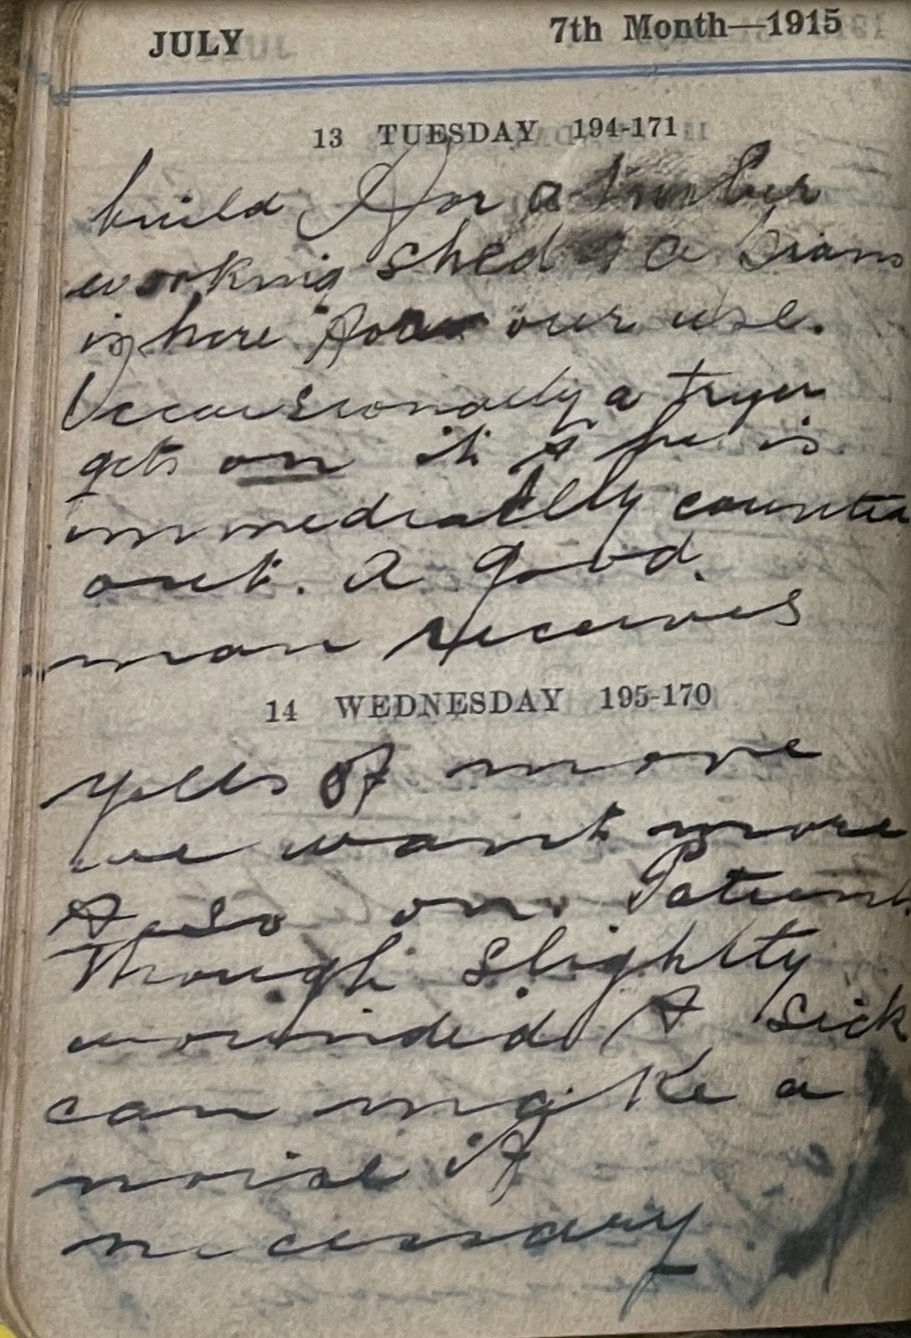 JULY 7th Month—1915
13 TUESDAY 194-171
build for a timber
working shed & a piano
is here for our use.
Occaisionally a tryer
gets on it & he is
immediatlly counted
out. A good
man receives
14 WEDNESDAY 195-170
yells of more
we want more
& so on. Patients
though slightly
wounded & sick
can make a
noise if
necessary